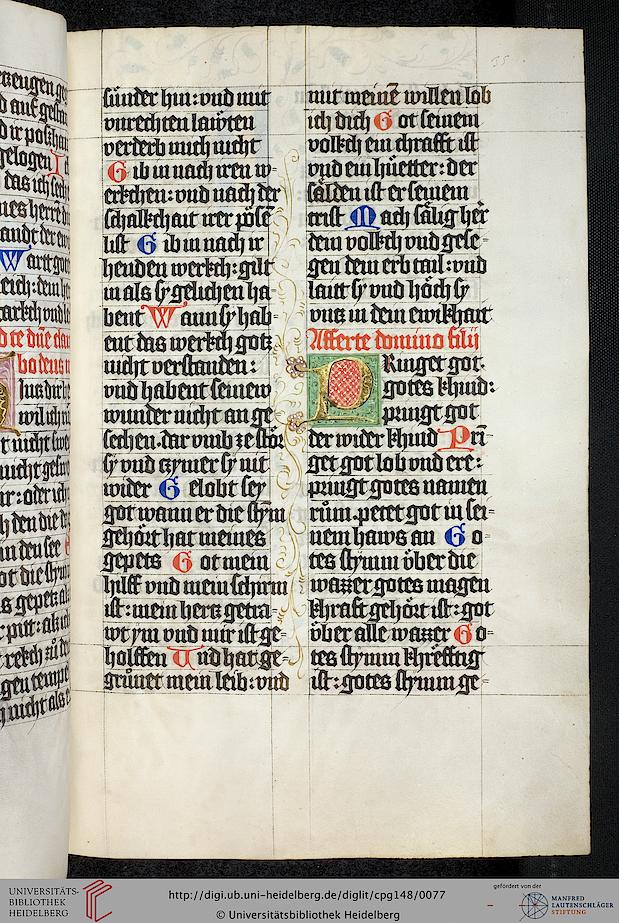 sünder hin: vnd mit
vnrechten läwten
verderb mich nicht
Gib in nach iren w-
erkchen: vnd nach der
schalkchait irer pösē
list Gib in nach ir
henden werkch: gilt
in als sy gelichen ha-
bent Wann sy hab-
ent das werkch gotz
nicht verstanden:
vnd habent seinew
wunder nicht an ge
sechen. dar vmb ze stör
sy vnd czymer sy nit
wider Gelobt sey
got wann er die stym
gehört hat meines
gepets Got mein
hilff vnd mein schirm
ist: mein hertz getra-
wt ym vnd mir ist ge-
holffen Vnd hat ge-
grünet mein leib: vnd
mit meinē willen lob
ich dich Got seinem
volkch ein chrafft ist
vnd ein hüetter: der
sälden ist er seinem
crist Mach sälig her
dein volkch vnd gese-
gen dein erb tail: vnd
laitt sy vnd höch sy
vntz in dem ewikhait
Afferte domino filij
PRinget got.
gotes khind:
pringt got
der wider khind Prī-
get got lob vnd ere:
pringt gotes namen
rüm. petet got in sei-
nem haws an Go-
tes stymm über die
wazzer gotes magen
khraft gehört ist: got
über alle wazzer Go-
tes stymm khrefftig
ist: gotes stymm ge-
UNIVERSITÄTS-
BIBLIOTHEK
HEIDELBERG
http://digi.ub.uni-heidelberg.de/diglit/cpg148/0077
© Universitätsbibliothek Heidelberg
gefördert von der
MANFRED
LAUTENSCHLÄGER
STIFTUNG